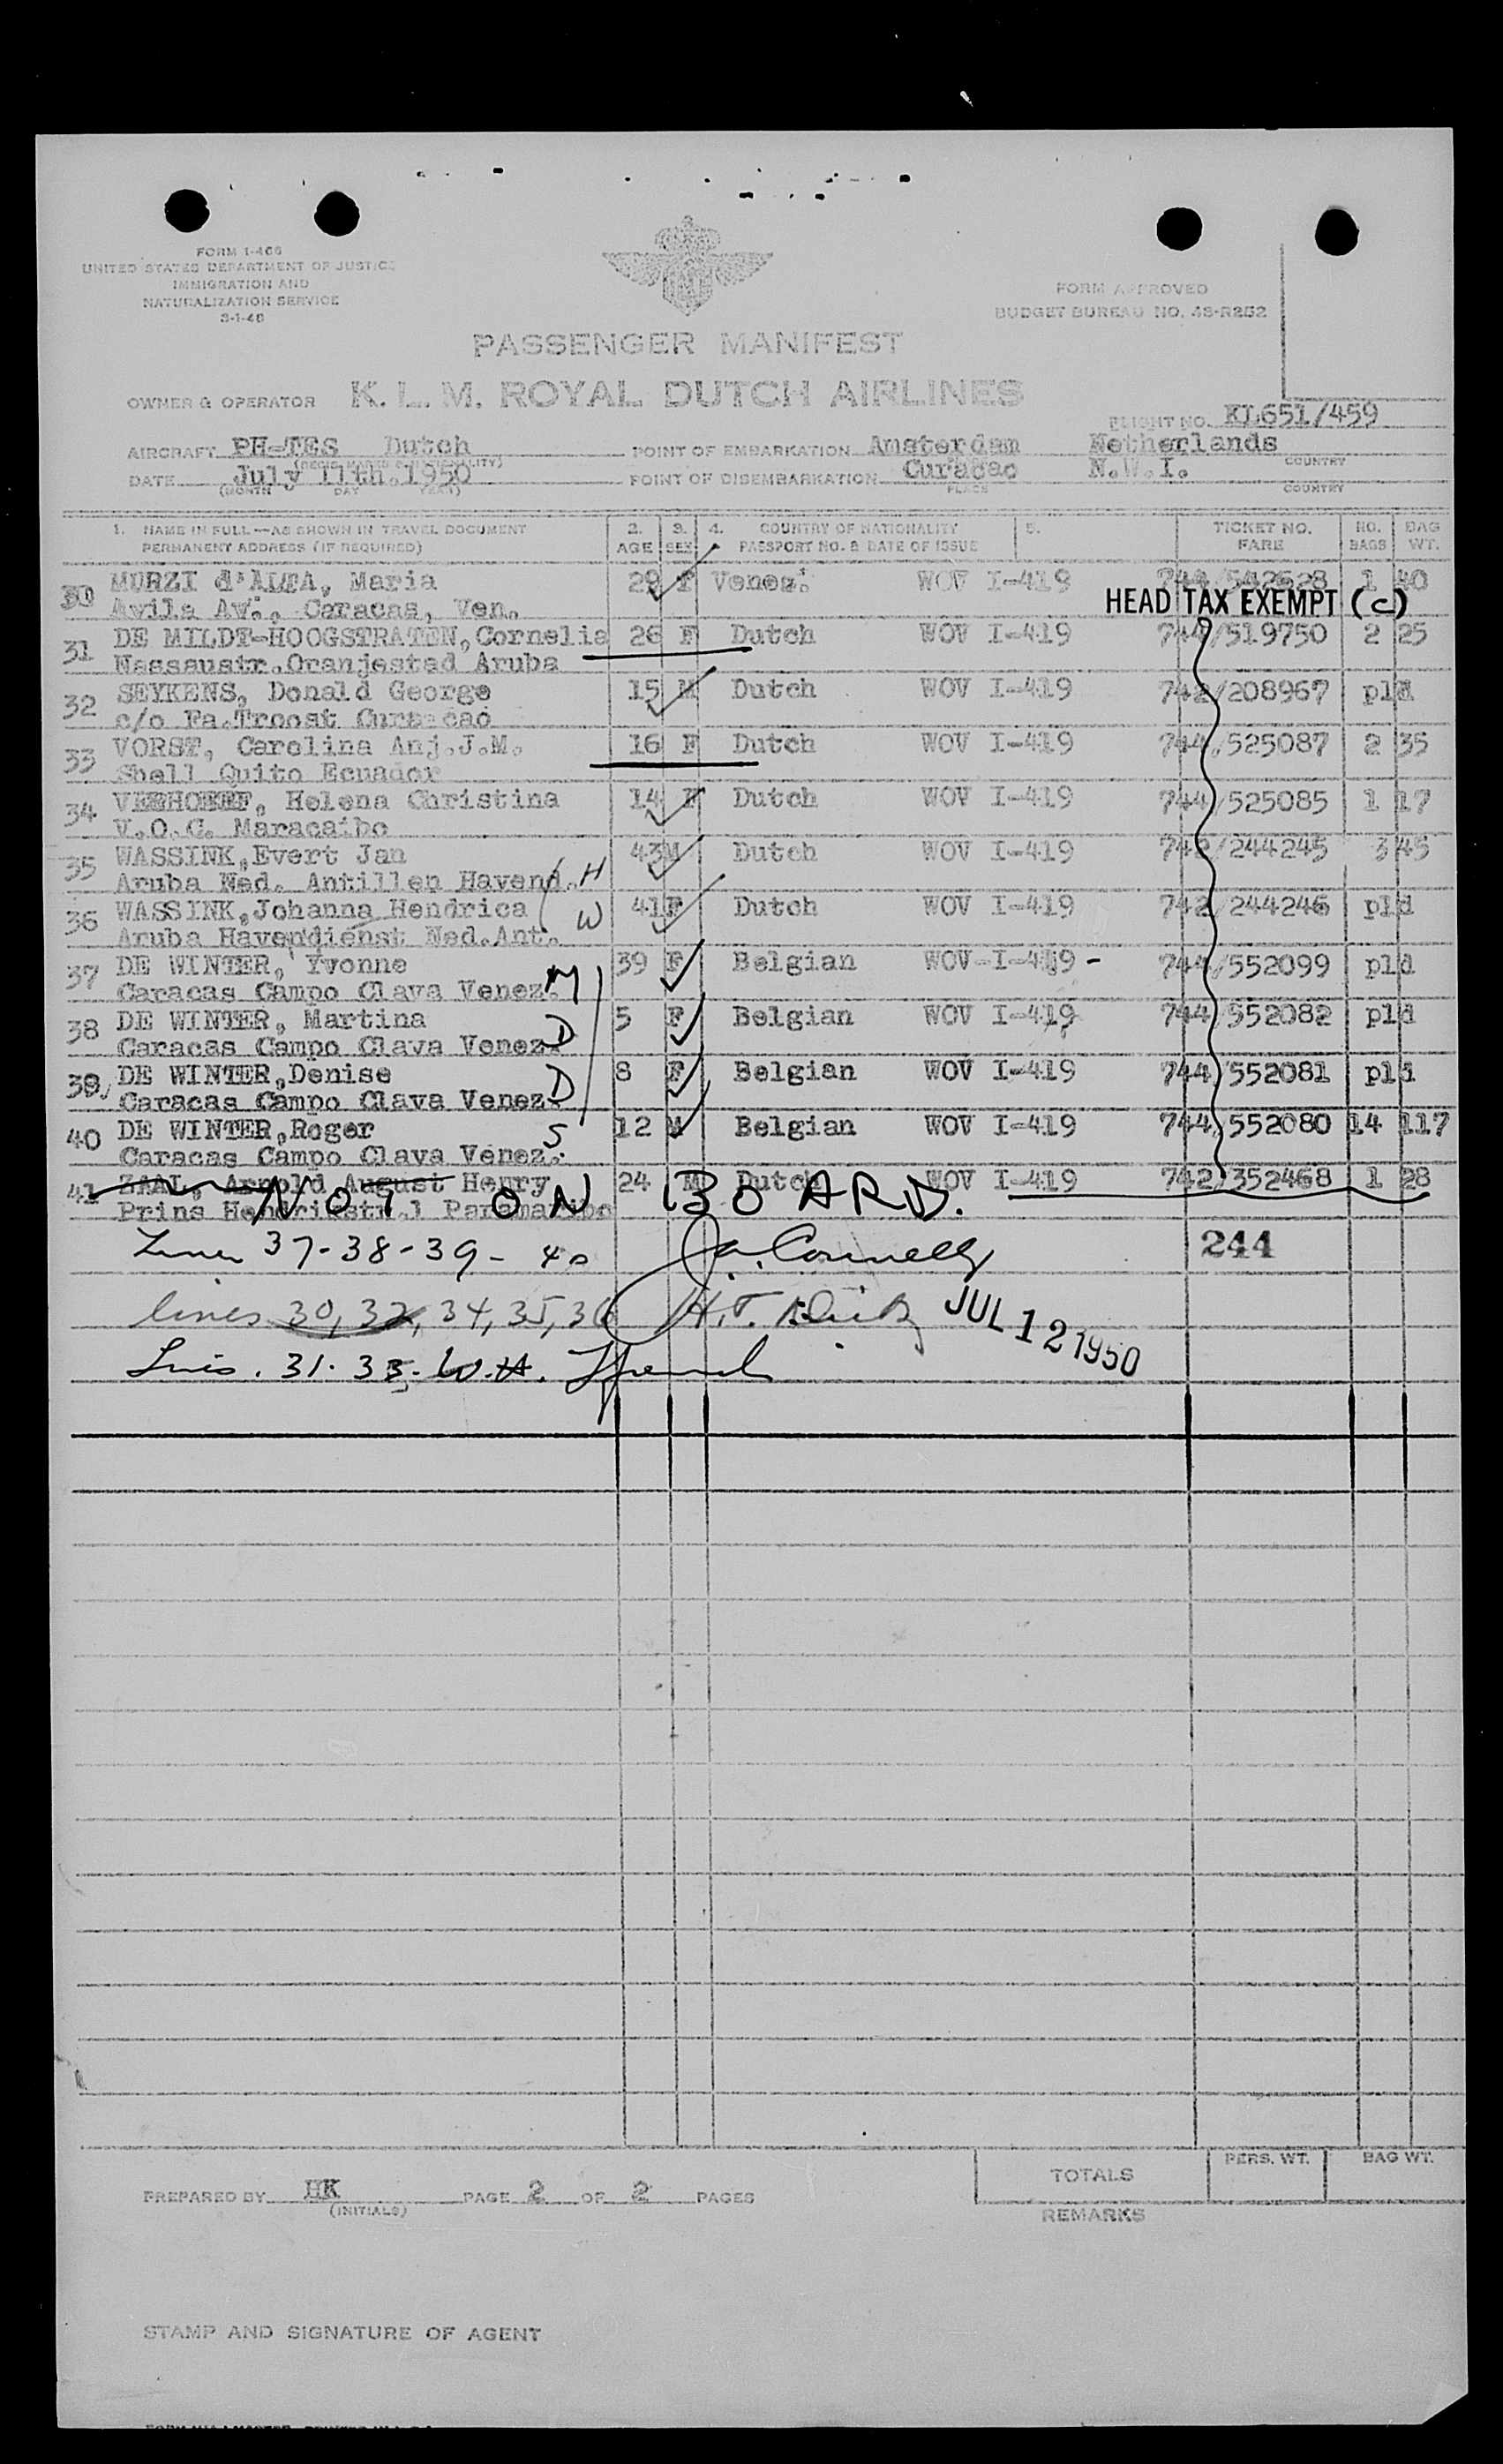 FORM I-466
UNITED STATES DEPARTMENT OF JUSTICE
IMMIGRATION AND
NATURALIZATION SERVICE
3-1-48
FORM APPROVED
BUDGET BUREAU NO. 43-R252
PASSENGER MANIFEST
OWNER & OPERATOR K. L. M. ROYAL DUTCH AIRLINES
FLIGHT NO. KL651/459
AIRCRAFT PH-TES Dutch POINT OF EMBARKATION Amsterdam Netherlands
(REGIS. MARKS & NATIONALITY) COUNTRY
DATE July 11th.1950 POINT OF DISEMBARKATION Curacao N.W.I.
(MONTH DAY YEAR) PLACE COUNTRY
1. NAME IN FULL—AS SHOWN IN TRAVEL DOCUMENT 2. 3. 4. COUNTRY OF NATIONALITY 5. TICKET NO. NO. BAG
PERMANENT ADDRESS (IF REQUIRED) AGE SEX PASSPORT NO. & DATE OF ISSUE FARE BAGS WT.
30 MURZI d'ALTA, Maria 29 F Venez. WOV I-419 744/542628 1 40
Avila Av., Caracas, Ven. HEAD TAX EXEMPT (c)
31 DE MILDT-HOOGSTRATEN,Cornelia 26 F Dutch WOV I-419 744/519750 2 25
Nassaustr.Oranjestad Aruba
32 SEYKENS, Donald George 15 M Dutch WOV I-419 742/208967 pld
c/o Fa.Troost Curacao
33 VORST, Carolina Anj.J.M. 16 F Dutch WOV I-419 744/525087 2 35
Shell Quito Ecuador
34 VERHOEFF, Helena Christina 14 F Dutch WOV I-419 744/525085 1 17
V.O.C. Maracaibo
35 WASSINK,Evert Jan 43 M Dutch WOV I-419 742/244245 3 45
Aruba Ned. Antillen Havend. H
36 WASSINK,Johanna Hendrica W 41 F Dutch WOV I-419 742/244246 pld
Aruba Havendienst Ned.Ant.
37 DE WINTER, Yvonne 39 F Belgian WOV-I-419 - 744/552099 pld
Caracas Campo Clava Venez. M
38 DE WINTER, Martina 5 F Belgian WOV I-419 744/552082 pld
Caracas Campo Clava Venez. D
39 DE WINTER,Denise 8 F Belgian WOV I-419 744/552081 pld
Caracas Campo Clava Venez. D
40 DE WINTER,Roger S 12 M Belgian WOV I-419 744/552080 14 117
Caracas Campo Clava Venez.
41 ZAAL, Arnold August Henry 24 M Dutch WOV I-419 742/352468 1 28
Prins Hendrikstr.1 Paramaribo
NOT ON BOARD.
Lines 37-38-39-40 J.A. Connelly 244
lines 30, 32, 34, 35, 36 H.T.
JUL 12 1950
Lines. 31. 33. W.H.
PREPARED BY HK PAGE 2 OF 2 PAGES
(INITIALS)
TOTALS PERS. WT. BAG WT.
REMARKS
STAMP AND SIGNATURE OF AGENT